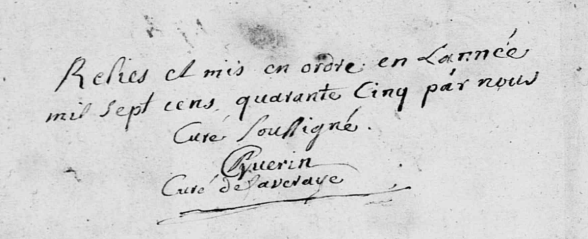 Reliés et mis en ordre en Lannée
mil sept cens quarante Cinq par nous
Curé Soussigné.
Guerin
Curé de Laveraye